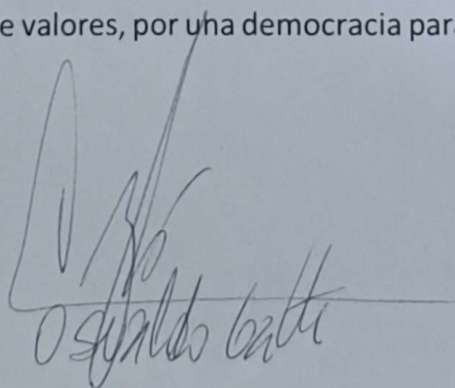 e valores, por una democracia para
Osvaldo Gatti